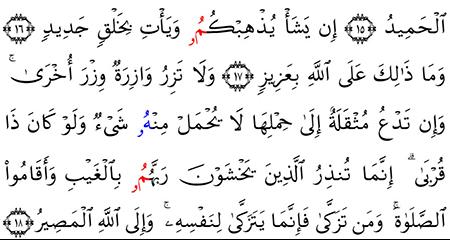 اَلْحَمِيدُ ﴿١٥﴾ إِن يَشَأْ يُذْهِبْكُمُۥ وَيَأْتِ بِخَلْقٍ جَدِيدٍ ﴿١٦﴾
وَمَا ذَٰلِكَ عَلَى اَللَّهِ بِعَزِيزٍ ﴿١٧﴾ وَلَا تَزِرُ وَازِرَةٌ وِزْرَ أُخْرَىٰ ۚ
وَإِن تَدْعُ مُثْقَلَةٌ إِلَىٰ حِمْلِهَا لَا يُحْمَلْ مِنْهُۥ شَيْءٌ وَلَوْ كَانَ ذَا
قُرْبَىٰ ۗ إِنَّمَا تُنذِرُ اُلَّذِينَ يَخْشَوْنَ رَبَّهُمُۥ بِالْغَيْبِ وَأَقَامُواْ
اُلصَّلَوٰةَ ۚ وَمَن تَزَكَّىٰ فَإِنَّمَا يَتَزَكَّىٰ لِنَفْسِهِۦ ۚ وَإِلَى اَللَّهِ اِلْمَصِيرُ ﴿١٨﴾